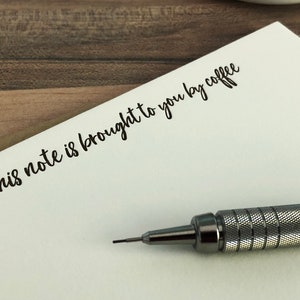 his note is brought to you by coffee